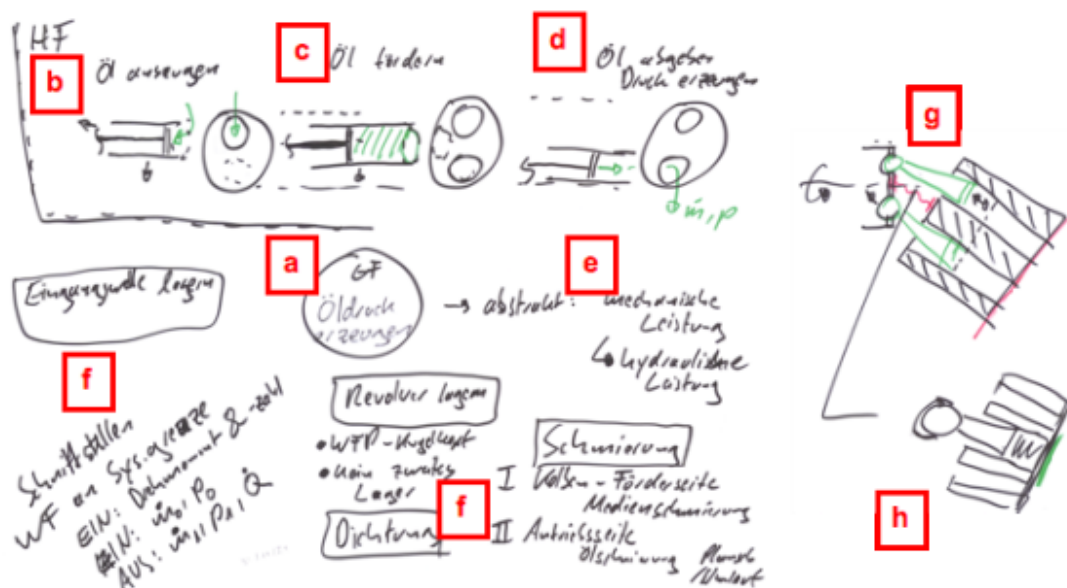 HF
b
Öl ansaugen
c
Öl fördern
d
Öl abgeben
Druck erzeugen
ṁ, p
g
a
GF
Öldruck
erzeugen
e
→ abstrakt: mechanische
Leistung
↳ hydraulische
Leistung
Eingangswelle lagern
f
Schnittstellen
WF an Sys.grenze
EIN: Drehmoment & -zahl
EIN: ṁ₀, P₀
AUS: ṁ₁, P₁, Q̇
Revolver lagern
• WFP-Kugelkopf
• kein zweites
Lager
f
Dichtung
Schmierung
I Kolben-Förderseite
Medienschmierung
II Antriebsseite
Ölschmierung
h